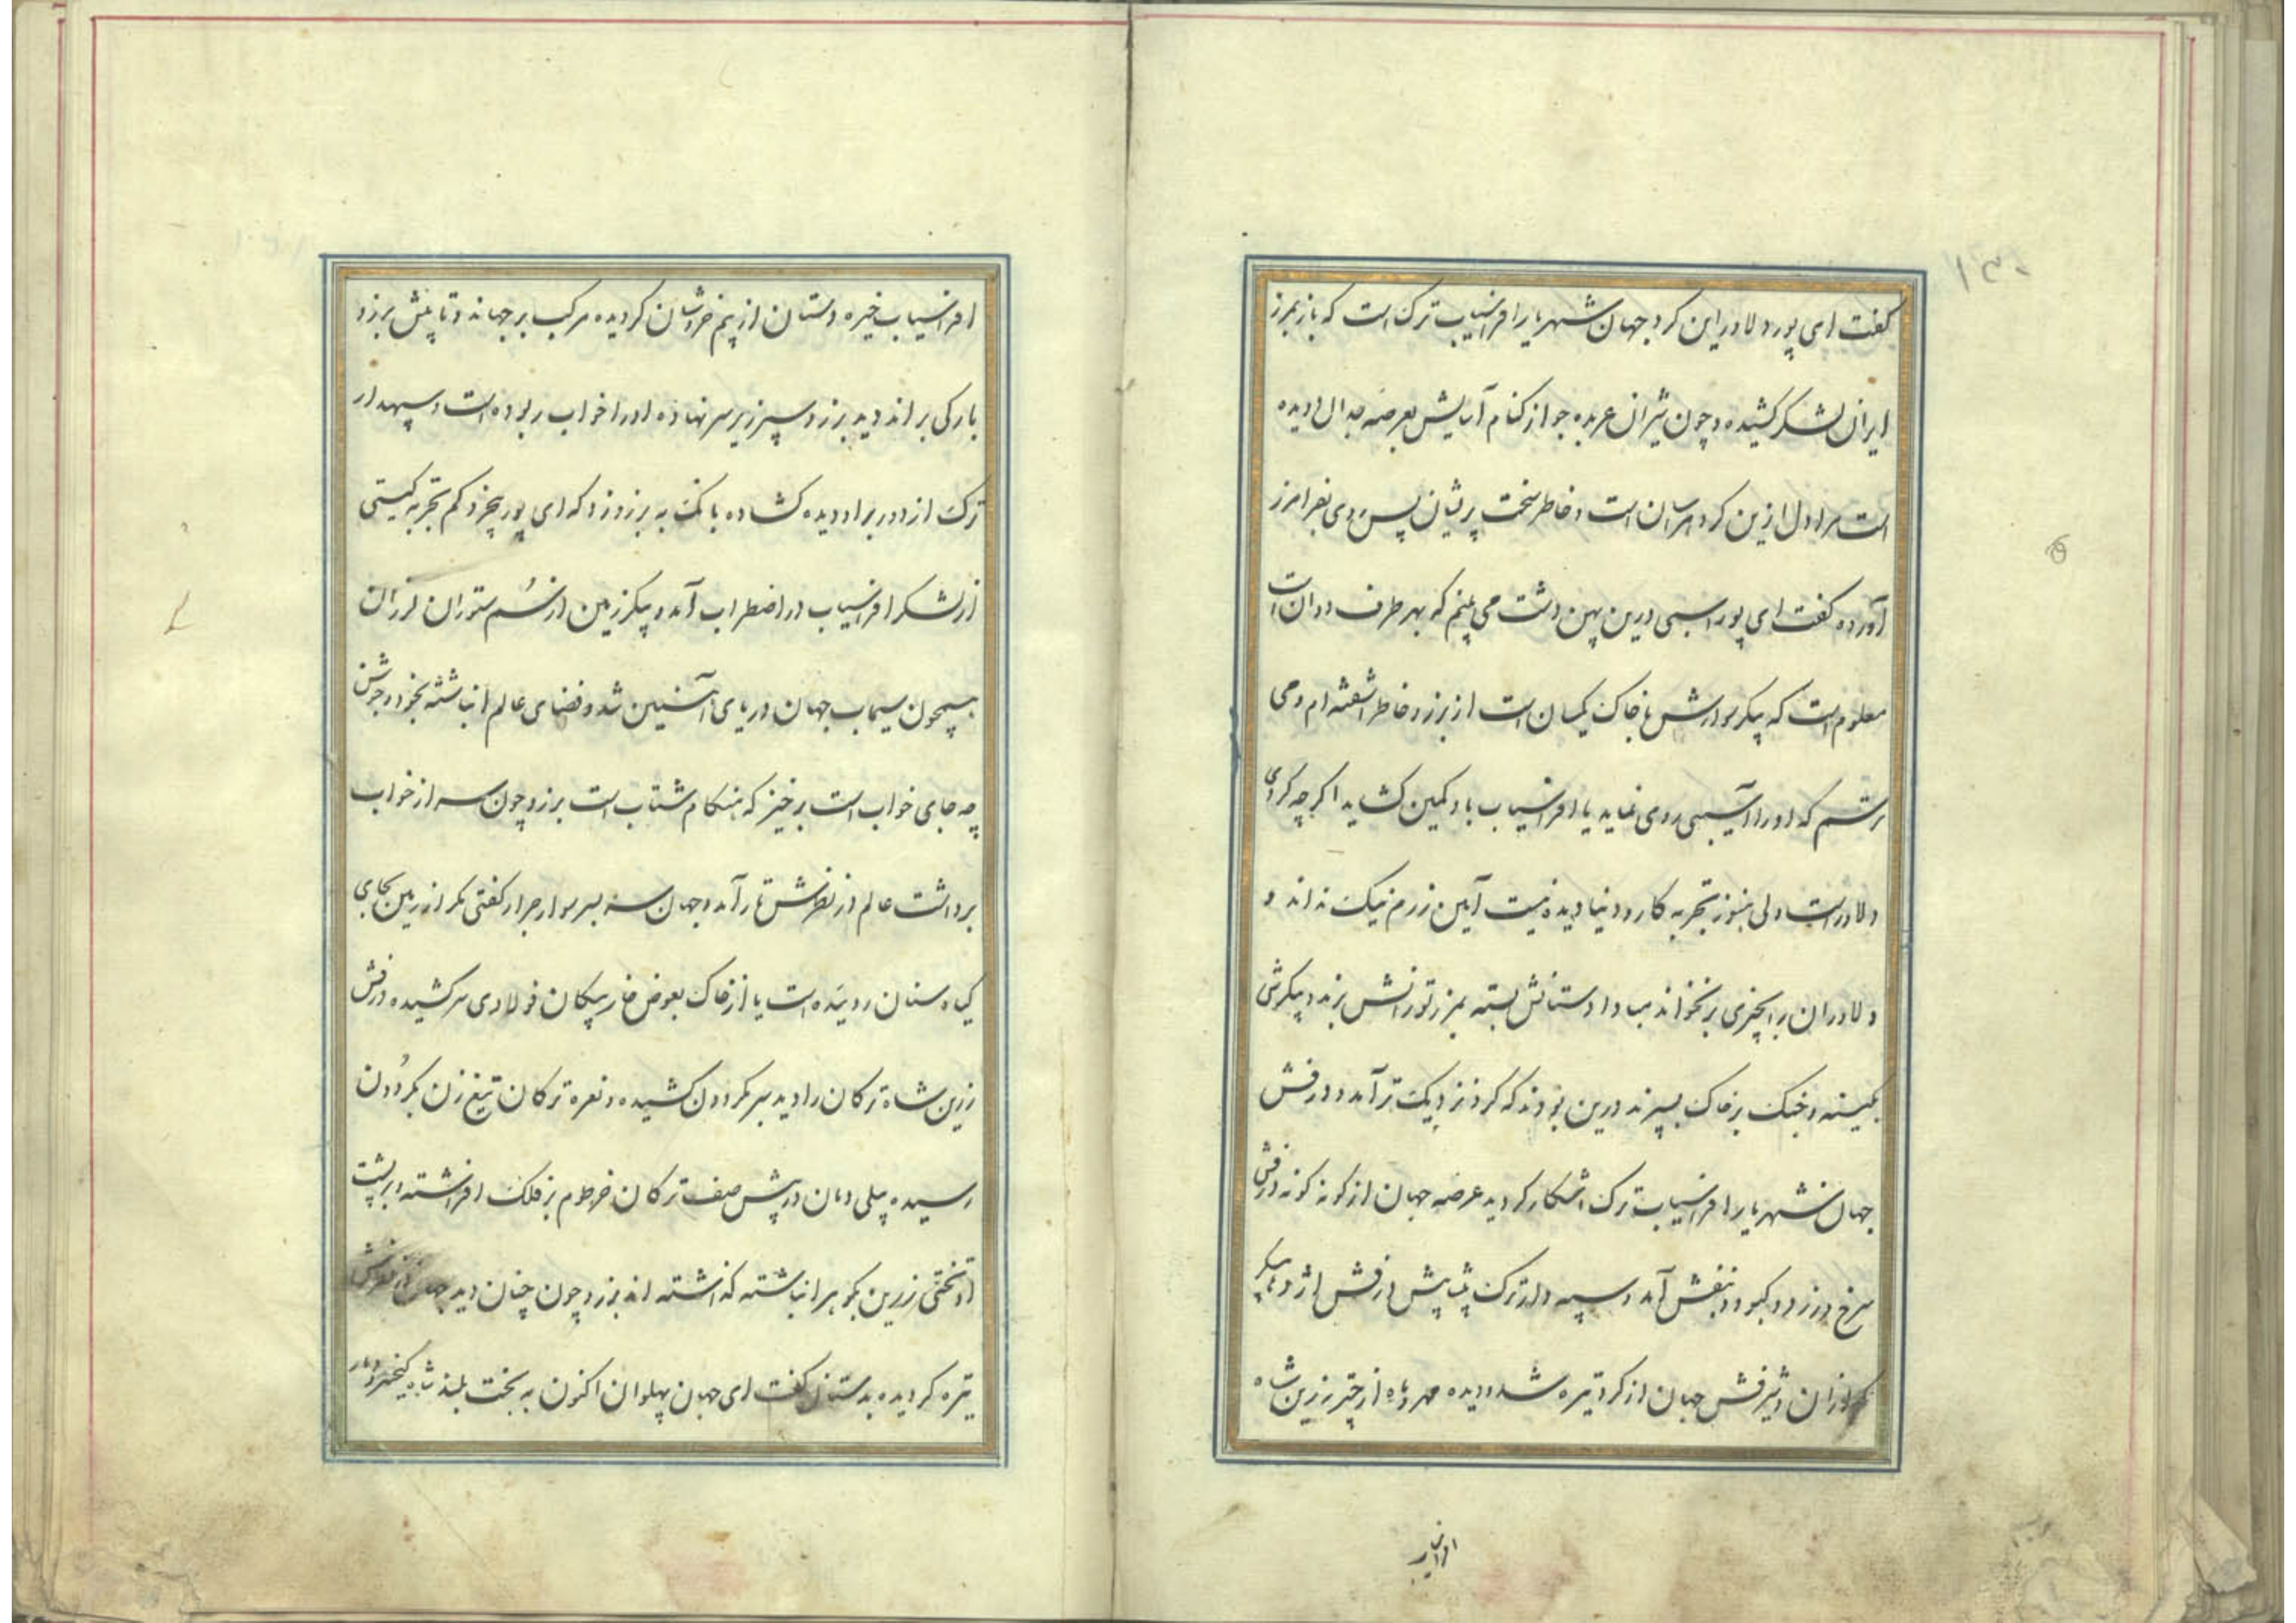 ۱۳۰
گفت ای پور دلاور این گرد جهان شهریار افراسیاب ترک است که باز بمرز
ایران لشکر کشیده و چون شیران عربده جو از کنام آسایش بعرصه جدال دویده
است مرا دل ازین گرد هراسان است و خاطر سخت پریشان پس روی بفرامرز
آورده گفت ای پور اسبی درین پهن دشت می بینم که بهر طرف دوان است
معلوم است که پیکر سوارش با خاک یکسان است از برزو خاطر اشفته ام و می
ترسم که او را آسیبی روی نماید یا افراسیاب باو کمین کشاید اگر چه گردی
دلاور است ولی هنوز تجربه کار و دنیا دیده نیست آیین رزم نیک نداند و
دلاوران را بچیزی برنخواند مبادا دستانش بسته بمرز تورانش برند و پیکرش
بکینه و جنگ بر خاک بسپرند درین بودند که گرد نزدیک تر آمد و درفش
جهان شهریار افراسیاب ترک اشکار گردید عرصه جهان از گونه گونه درفش
سرخ و زرد و کبود و بنفش آمد و سپه دار ترک پیشاپیش درفش اژدها پیکر
گرازان و شیرفش جهان از گرد تیره شد و دیده مهر و ماه از چتر زرین شاه
افراسیاب
افراسیاب خیره دستان از بیم خروشان گردیده مرکب بر جهاند و تا پیش برزو
بارگی براند دید برزو سپر زیر سر نهاده او را خواب ربوده است و سپهدار
ترک از دور بر او دیده کشاده بانگ به برزو زد که ای پور بیخرد کم تجربه گیتی
از لشکر افراسیاب در اضطراب آمد و پیکر زمین از سُم ستوران لرزان
همچون سیماب جهان دریای آهنین شد و فضای عالم انباشته بخود و جوشن
چه جای خواب است برخیز که هنگام شتاب است برزو چون سر از خواب
برداشت عالم در نظرش تار آمد و جهان سر بسر سوار جرار گفتی مگر از زمین بجای
گیاه سنان روییده است یا از خاک بعوض خار پیکان فولادی سر کشیده درفش
زرین شاه ترکان را دید سر بگردون کشیده و نعره ترکان تیغ زن بگردون
رسیده پیلی دمان در پیش صف ترکان خرطوم بر فلک افراشته و بر پشت
او تختی زرین بگوهر انباشته گذاشته اند برزو چون چنان دید جهان در نظرش
تیره گردیده بدستان گفت ای جهان پهلوان اکنون به بخت بلند شاه کیخسرو